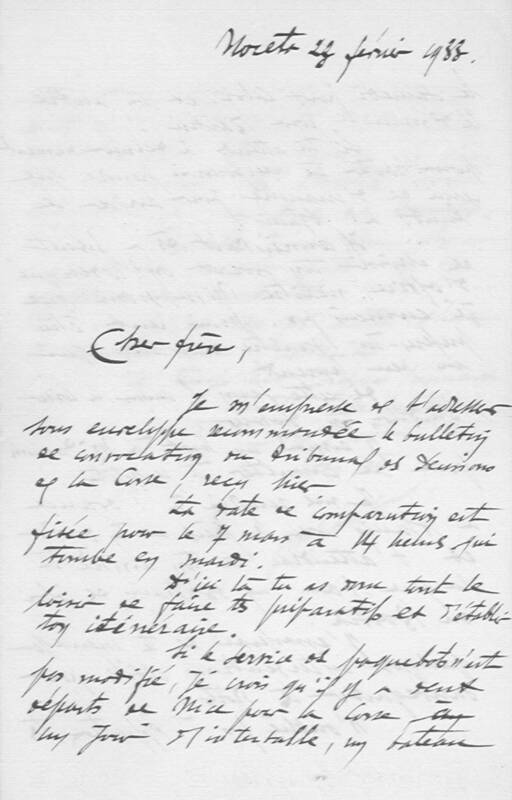 Noceta 23 février 1933.
Cher frère,
Je m'empresse de t'adresser
sous enveloppe recommandée le bulletin
de convocation du Tribunal des Pensions
de la Corse reçu hier
La date de comparution est
fixée pour le 7 mars à 14 heures qui
tombe en mardi.
D'ici là tu as donc tout le
loisir de faire tes préparatifs et d'établir
ton itinéraire.
Si le service des paquebots n'est
pas modifié, je crois qu'il y a deux
départs de Nice pour la Corse
un jour d'intervalle, un bateau